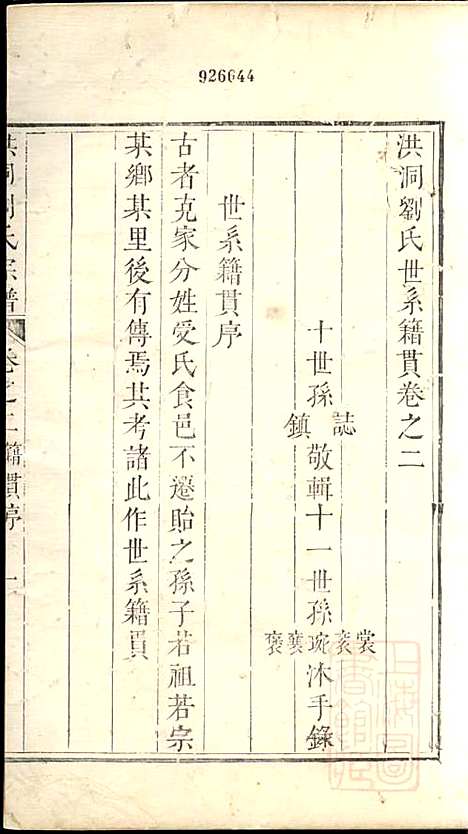 926644
洪洞劉氏世系籍貫卷之二
十世孫誌鎮敬輯十一世孫裳衮琬襄褒沐手錄
世系籍貫序
古者克家分姓受氏食邑不遷貽之孫子若祖若宗
某鄉某里後有傳焉其考諸此作世系籍貫
洪洞劉氏宗譜 卷之二籍貫序 一
上海圖書館藏